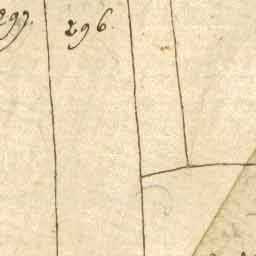 297.
296.